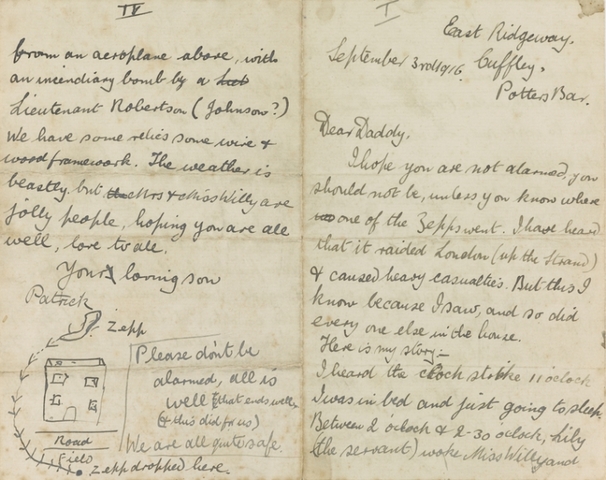 I
East Ridgeway.
September 3rd 1916. Cuffley,
Potters Bar.
Dear Daddy.
I hope you are not alarmed, you
should not be, unless you know where
one of the Zepps went. I have heard
that it raided London (up the Strand)
& caused heavy casualties. But this I
know because I saw, and so did
every one else in the house.
Here is my story:-
I heard the clock strike 11 oclock
I was in bed and just going to sleep.
Between 2 oclock & 2-30 oclock, Lily
(the servant) woke Miss Willy and
IV
from an aeroplane above, with
an incendiary bomb by a
Lieutenant Robertson (Johnson?)
We have some relics some wire &
wood framework. The weather is
beastly but Mrs & Miss Willy are
jolly people, hoping you are all
well, love to all.
Your loving son
Patrick
Zepp
Please don't be
alarmed, all is
well that ends well
(& this did for us)
We are all quite safe.
Road
Field
Zepp dropped here.